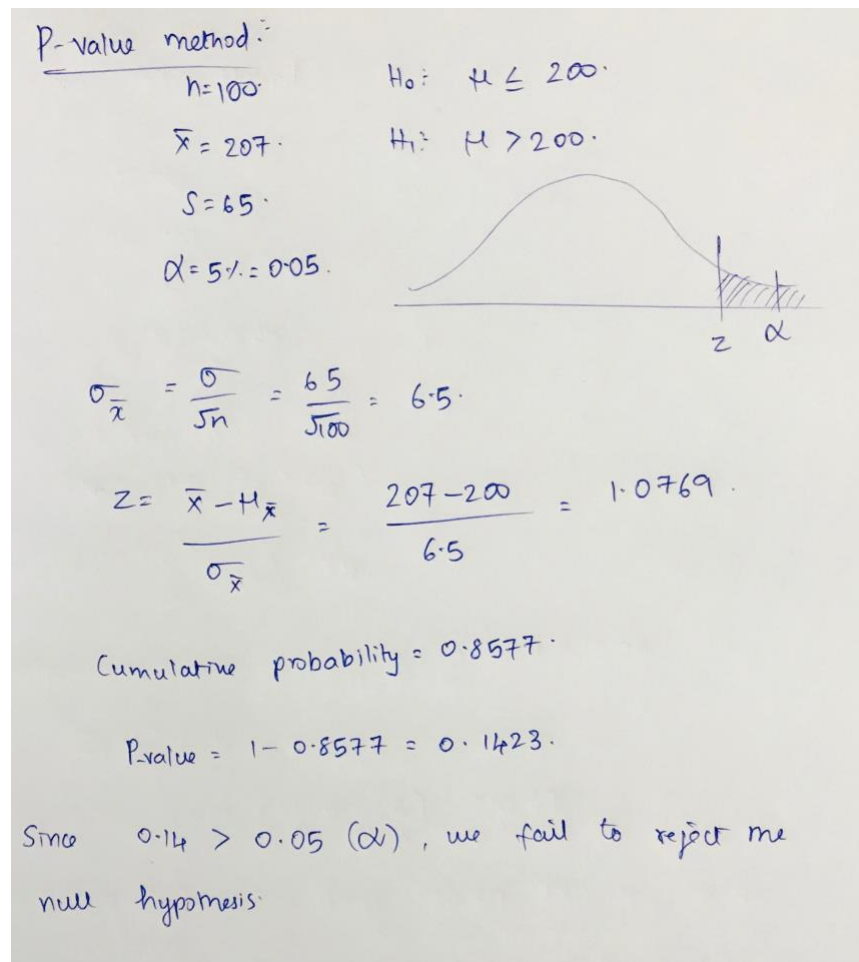 P-value method:-
n=100. H₀: μ ≤ 200.
x̄ = 207. H₁: μ > 200.
S=65.
α = 5% = 0.05.
z α
σx̄ = σ/√n = 65/√100 = 6.5.
Z = (x̄ - μx̄)/σx̄ = (207-200)/6.5 = 1.0769.
Cumulative probability = 0.8577.
P-value = 1 - 0.8577 = 0.1423.
Since 0.14 > 0.05 (α), we fail to reject the
null hypothesis.